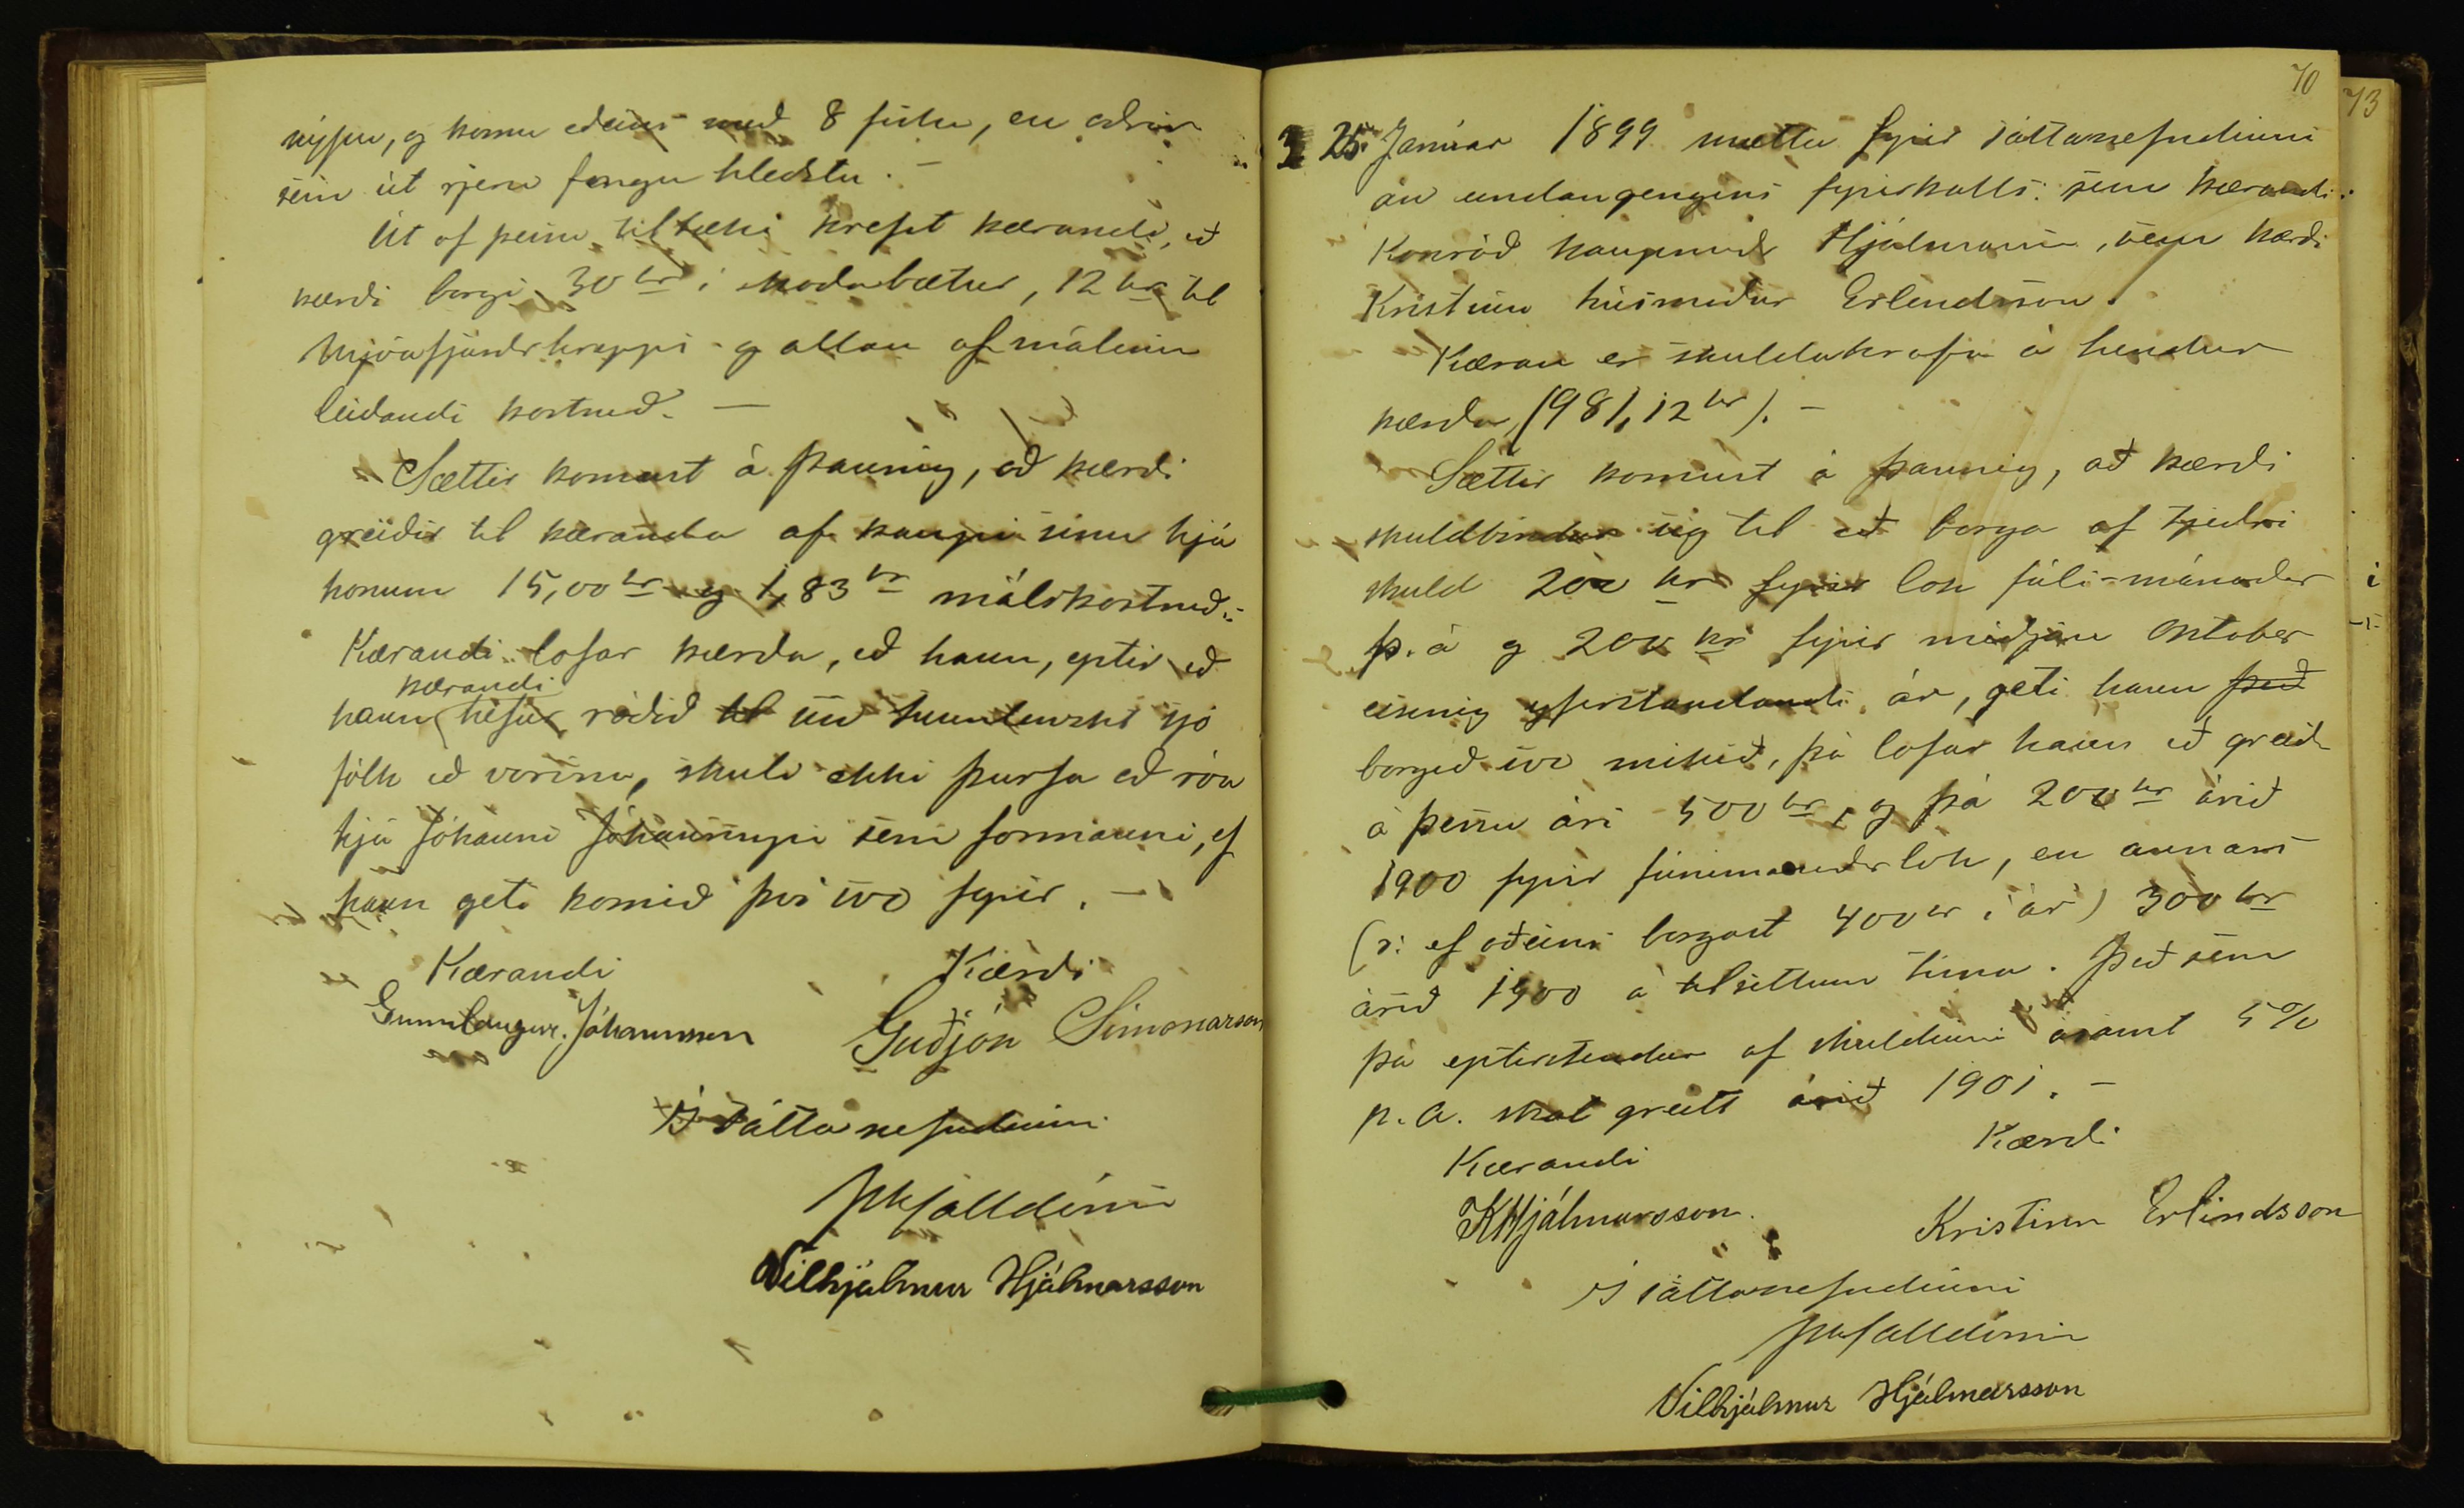 nýjan, og komu aðeins með 8 fiska, en aðrir
sem út rjeru fengu hleðslu. —
Út af þessu tiltæki krefst kærandi, að
kærði borgi 30 kr í skaðabætur, 12 kr til
Mjóafjarðarhrepps og allan af málinu
leiðandi kostnað. —
Sættir komust á þannig, að kærði
greiðir til kæranda af kaupi sínu hjá
honum 15,00 kr og 1,83 kr málskostnað.
Kærandi lofar kærða, að hann, eptir að
kærandi
hann hefur ráðið til sín sjó
fólk að vorinu, skuli ekki þurfa að róa
hjá Jóhanni Jóhannssyni sem formanni, ef
hann geti komið því svo fyrir. —
Kærandi Kærði
Gunnlaugur Jóhannsson Guðjón Símonarson
Í sáttanefndinni
Vilhjálmur Hjálmarsson
70
73
25. Janúar 1899 mættu fyrir sáttanefndinni
án undangengins fyrirkalls: sem kærandi:
Konráð kaupmaður Hjálmarsson, sem kærði
Kristinn húsmaður Erlendsson.
Kæran er skuldakrafa á hendur
kærða, (981,12 kr). —
Sættir komust á þannig, að kærði
skuldbindur sig til að borga af tjeðri
skuld 200 kr fyrir lok júlí-mánaðar
þ. á og 200 kr fyrir miðjan Oktober
einnig yfirstandandi ár, geti hann það
borgað svo mikið, þá lofar hann að greiða
á þessu ári 500 kr, og þá 200 kr árið
1900 fyrir júnímánaðarlok, en annars
(ɔ: ef aðeins borgast 400 kr í ár) 300 kr
árið 1900 á tilsettum tíma. Það sem
þá eptirstendur af skuldinni ásamt 5%
p.a. skal greitt árið 1901. —
Kærandi Kærði
KHjálmarsson. Kristinn Erlindsson
Í sáttanefndinni
Vilhjálmur Hjálmarsson